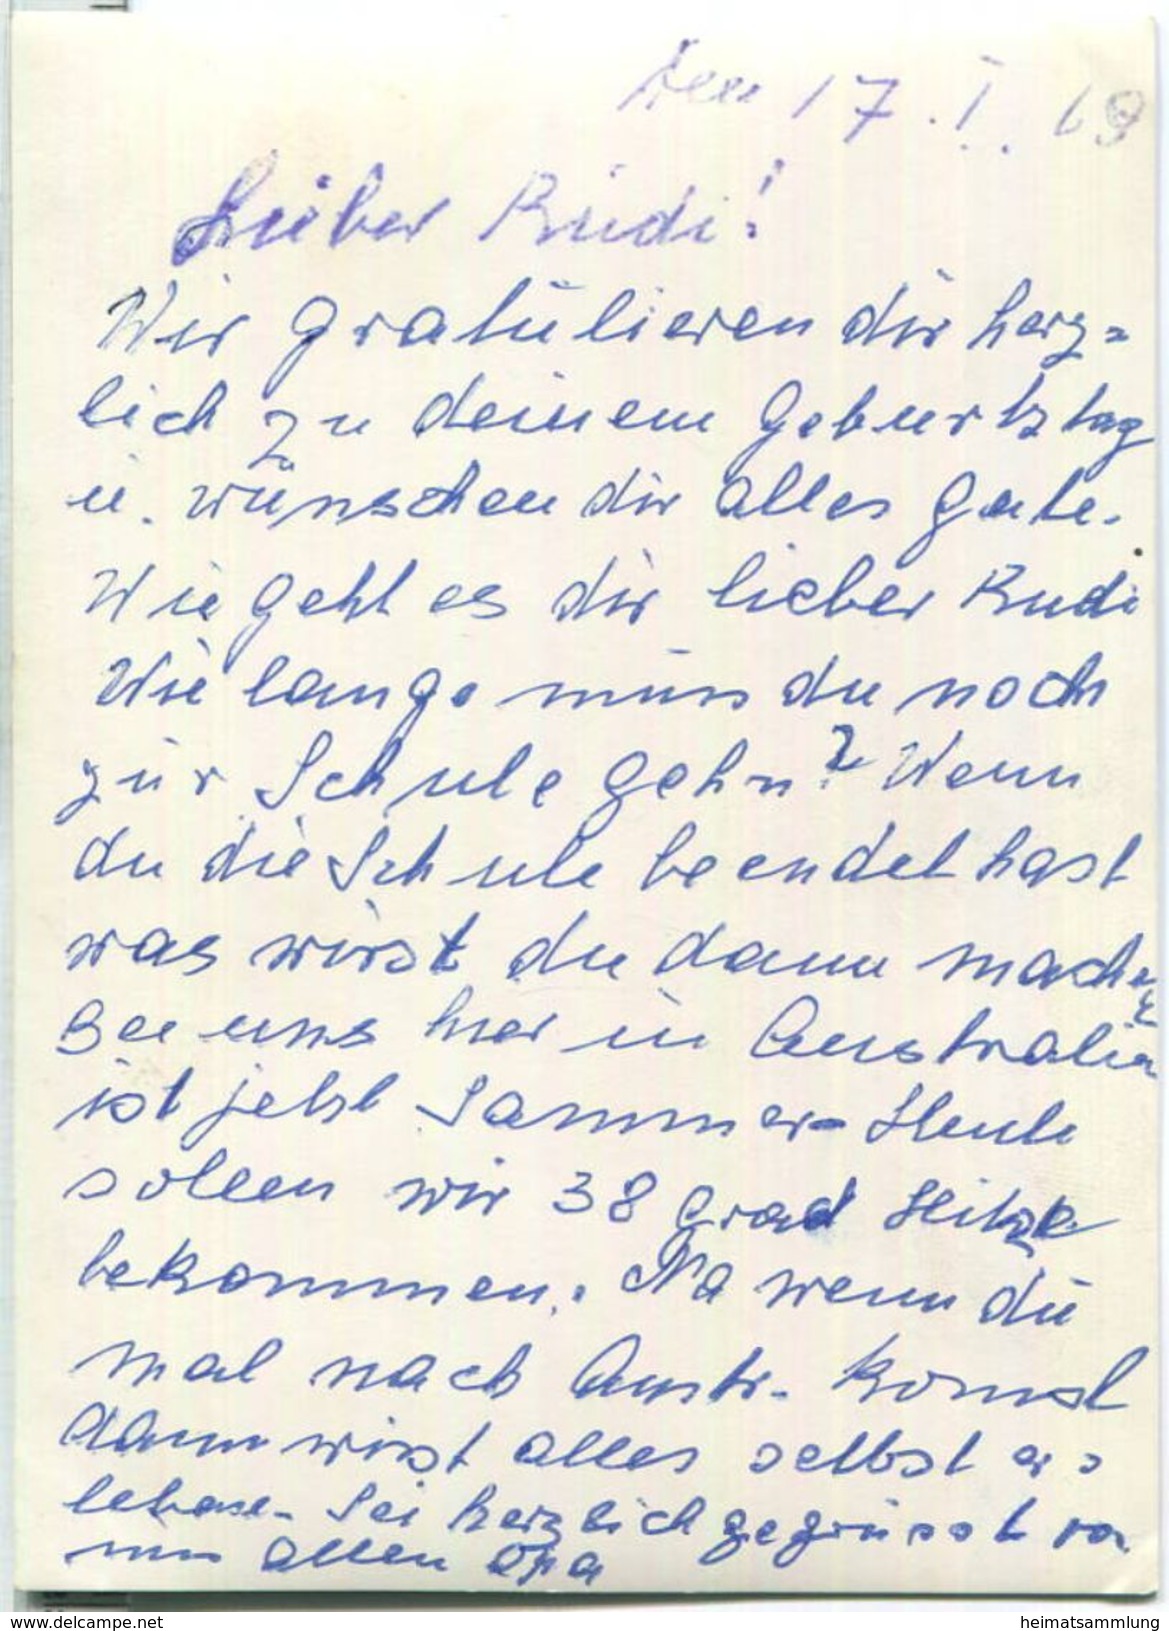 den 17. I. 69
Lieber Rudi!
Wir gratulieren dir herz=
lich zu deinem Geburtztag
u. wünschen dir alles Gute.
Wie geht es dir lieber Rudi
Wie lange muss du noch
zur Schule gehn? Wenn
du die Schule beendet hast
was wirst du dann machen
Bei uns hier in Australien
ist jetzt Sommer- Heute
sollen wir 38 Grad Hitze
bekommen. Na wenn du
mal nach Austr. komst
dann wirst alles selbst er=
leben. Sei herzlich gegrüsst von
uns allen Opa
www.delcampe.net
heimatsammlung